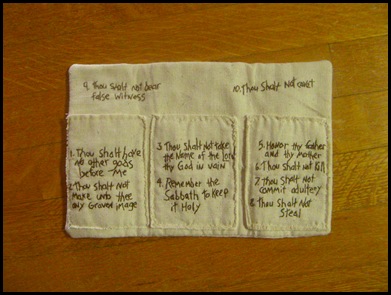 9. Thou shalt not bear
false witness
10. Thou Shalt Not covet
1. Thou Shalt have
no other gods
before Me
2. Thou Shalt Not
Make unto thee
any Graven image
3. Thou Shalt Not take
the Name of the Lord
thy God in vain
4. Remember the
Sabbath to Keep
it Holy
5. Honor thy father
and thy mother
6. Thou Shalt not Kill
7. Thou Shalt Not
commit adultery
8. Thou Shalt Not
Steal